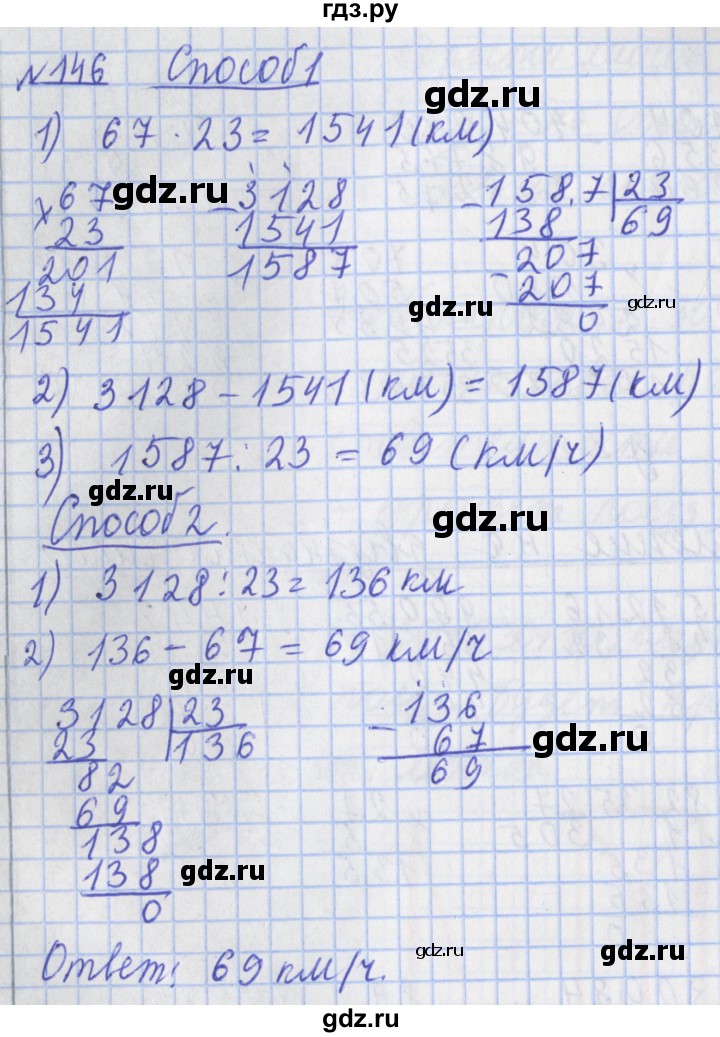 гдз.ру
№146 Способ 1
1) 67 · 23 = 1541 (км)
× 67
23
201
134
1541
- 3128
1541
1587
- 1587 | 23
138 69
- 207
207
0
2) 3128 - 1541 (км) = 1587 (км)
3) 1587 : 23 = 69 (км/ч)
Способ 2.
1) 3128 : 23 = 136 км
2) 136 - 67 = 69 км/ч
3128 | 23
23 136
82
69
138
138
0
- 136
67
69
Ответ: 69 км/ч.
gdz.ru
gdz.ru
gdz.ru
gdz.ru
gdz.ru
gdz.ru
gdz.ru
gdz.ru
gdz.ru
gdz.ru
gdz.ru
gdz.ru